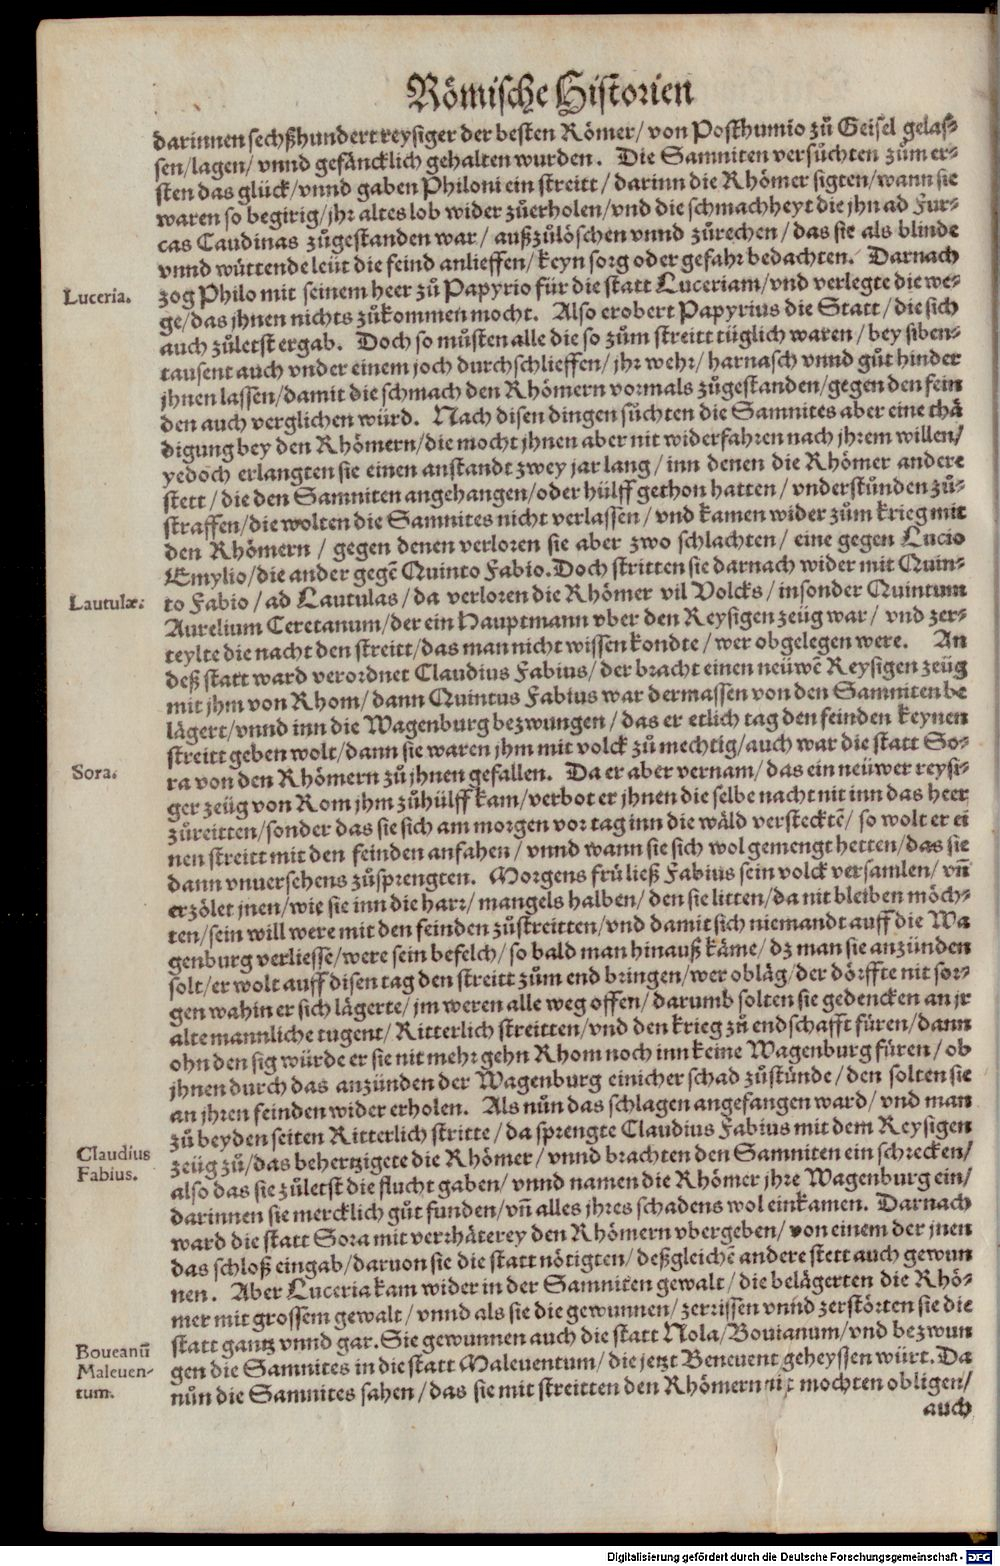 Römische Historien
darinnen sechßhundert reysiger der besten Römer/ von Posthumio zů Geisel gelas-
sen/lagen/ vnnd gefäncklich gehalten wurden. Die Samniten versůchten zům er-
sten das glück/vnnd gaben Philoni ein streitt/ darinn die Rhömer sigten/wann sie
waren so begirig/jhr altes lob wider zůerholen/vnd die schmachheyt die jhn ad Fur-
cas Caudinas zůgestanden war/ außzůlöschen vnnd zůrechen/das sie als blinde
vnnd wüttende leüt die feind anlieffen/keyn sorg oder gefahr bedachten. Darnach
Luceria.
zog Philo mit seinem heer zů Papyrio für die statt Luceriam/vnd verlegte die we-
ge/das jhnen nichts zůkommen mocht. Also erobert Papyrius die Statt/die sich
auch zůletst ergab. Doch so můsten alle die so zům streitt tüglich waren/ bey siben-
tausent auch vnder einem joch durchschlieffen/jhr wehr/harnasch vnnd gůt hinder
jhnen lassen/damit die schmach den Rhömern vormals zůgestanden/gegen den fein
den auch verglichen würd. Nach disen dingen sůchten die Samnites aber eine thä
digung bey den Rhömern/die mocht jhnen aber nit widerfahren nach jhrem willen/
yedoch erlangten sie einen anstandt zwey jar lang/inn denen die Rhömer andere
stett/die den Samniten angehangen/oder hülff gethon hatten/vnderstůnden zů-
straffen/die wolten die Samnites nicht verlassen/ vnd kamen wider zům krieg mit
den Rhömern/ gegen denen verloren sie aber zwo schlachten/ eine gegen Lucio
Emylio/die ander gegē Quinto Fabio. Doch stritten sie darnach wider mit Quin-
Lautulæ.
to Fabio/ad Lautulas/da verloren die Rhömer vil Volcks/insonder Quintum
Aurelium Ceretanum/der ein Hauptmann vber den Reysigen zeüg war/ vnd zer-
teylte die nacht den streitt/das man nicht wissen kondte/wer obgelegen were. An
deß statt ward verordnet Claudius Fabius/der bracht einen neüwē Reysigen zeüg
mit jhm von Rhom/dann Quintus Fabius war dermassen von den Samniten be
lägert/vnnd inn die Wagenburg bezwungen/das er etlich tag den feinden keynen
streitt geben wolt/dann sie waren jhm mit volck zů mechtig/auch war die statt So-
Sora.
ra von den Rhömern zů jhnen gefallen. Da er aber vernam/das ein neüwer reysi-
ger zeüg von Rom jhm zůhülff kam/verbot er jhnen die selbe nacht nit inn das heer
zůreitten/sonder das sie sich am morgen vor tag inn die wäld verstecktē/ so wolt er ei
nen streitt mit den feinden anfahen/ vnnd wann sie sich wol gemengt hetten/das sie
dann vnuersehens zůsprengten. Morgens frů ließ Fabius sein volck versamlen/ vn̄
erzölet jnen/wie sie inn die harr/mangels halben/den sie litten/da nit bleiben möch-
ten/sein will were mit den feinden zůstreitten/vnd damit sich niemandt auff die Wa
genburg verliesse/were sein befelch/so bald man hinauß käme/dz man sie anzünden
solt/er wolt auff disen tag den streitt zům end bringen/wer obläg/der dörffte nit sor-
gen wahin er sich lägerte/jm weren alle weg offen/darumb solten sie gedencken an jr
alte mannliche tugent/Ritterlich streitten/vnd den krieg zů endschafft füren/dann
ohn den sig würde er sie nit mehr gehn Rhom noch inn keine Wagenburg füren/ob
jhnen durch das anzünden der Wagenburg einicher schad zůstünde/den solten sie
an jhren feinden wider erholen. Als nůn das schlagen angefangen ward/vnd man
zů beyden seiten Ritterlich stritte/da sprengte Claudius Fabius mit dem Reysigen
Claudius
Fabius.
zeüg zů/das behertzigete die Rhömer/vnnd brachten den Samniten ein schrecken/
also das sie zůletst die flucht gaben/vnnd namen die Rhömer jhre Wagenburg ein/
darinnen sie mercklich gůt funden/vn̄ alles jhres schadens wol einkamen. Darnach
ward die statt Sora mit verrhäterey den Rhömern vbergeben/von einem der jnen
das schloß eingab/daruon sie die statt nötigten/deßgleichē andere stett auch gewun
nen. Aber Luceria kam wider in der Samniten gewalt/die belägerten die Rhö-
mer mit grossem gewalt/vnnd als sie die gewunnen/zerrissen vnnd zerstörten sie die
statt gantz vnnd gar. Sie gewunnen auch die statt Nola/Bouianum/vnd bezwun
Boueanū
Maleuen-
tum.
gen die Samnites in die statt Maleuentum/die jetzt Beneuent geheyssen würt. Da
nůn die Samnites sahen/das sie mit streitten den Rhömern nit mochten obligen/
auch
Digitalisierung gefördert durch die Deutsche Forschungsgemeinschaft - DFG